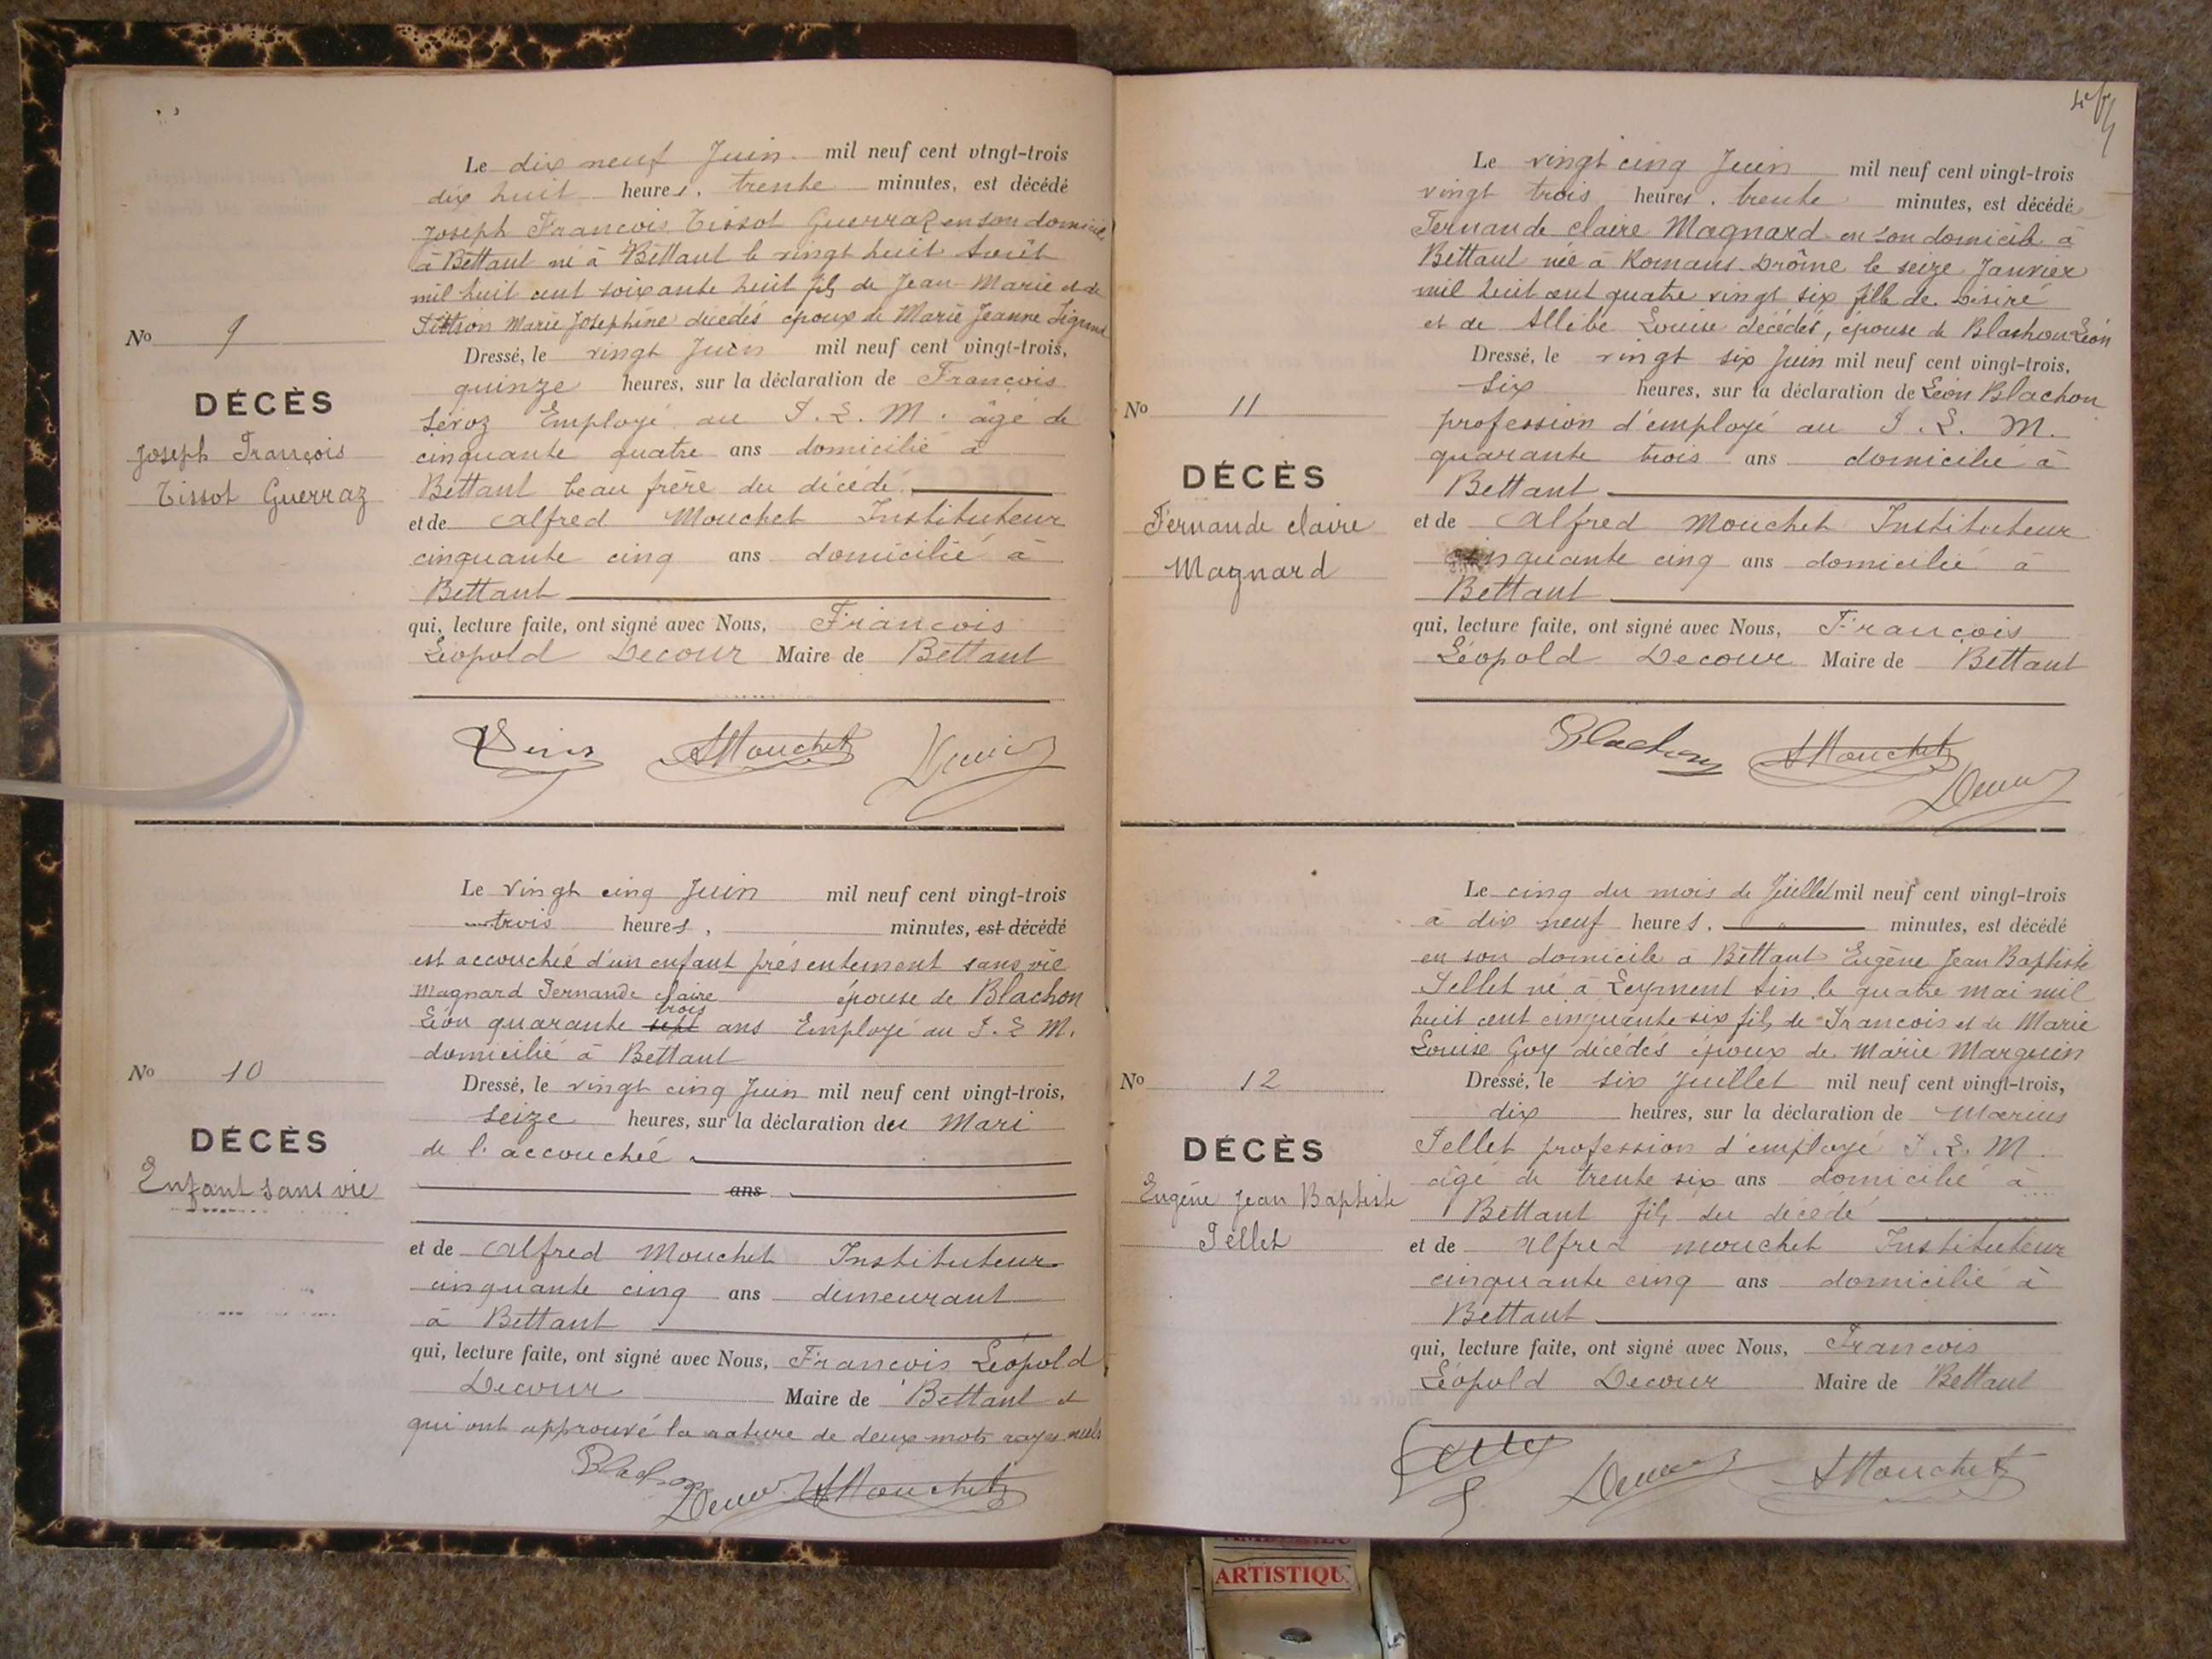 Le dix neuf Juin mil neuf cent vingt-trois
dix huit heures, trente minutes, est décédé
Joseph Francois Tissot Guerraz en son domicile
à Bettant né à Bettant le vingt huit Août
mil huit cent soixante huit fils de Jean Marie et de
Marie Josephine décédés époux de Marie Jeanne
No 9
Dressé, le vingt Juin mil neuf cent vingt-trois,
quinze heures, sur la déclaration de François
Séroz Employé au P. L. M. âgé de
DÉCÈS
Joseph François
Tissot Guerraz
cinquante quatre ans domicilié à
Bettant beau frère du décédé.
et de Alfred Mouchet Instituteur
cinquante cinq ans domicilié à
Bettant
qui, lecture faite, ont signé avec Nous, François
Léopold Decour Maire de Bettant
AMouchet
Le vingt cinq Juin mil neuf cent vingt-trois
trois heures, minutes, est décédé
est accouchée d'un enfant présentement sans vie
Magnard Fernande Claire épouse de Blachon
trois
Léon quarante sept ans Employé au P. L. M.
domicilié à Bettant
No 10
Dressé, le vingt cinq Juin mil neuf cent vingt-trois,
seize heures, sur la déclaration du Mari
de l'accouchée
DÉCÈS
Enfant sans vie
ans
et de Alfred Mouchet Instituteur
cinquante cinq ans demeurant
à Bettant
qui, lecture faite, ont signé avec Nous, Francois Léopold
Decour Maire de Bettant et
qui ont approuvé la rature de deux mots rayés nuls
Blachon
AMouchet
Le vingt cinq Juin mil neuf cent vingt-trois
vingt trois heures, trente minutes, est décédé
Fernande Claire Magnard en son domicile à
Bettant née à Romans Drôme le seize Janvier
mil huit cent quatre vingt six fille de Désiré
et de Allibe Louise décédés, épouse de Blachon Léon
Dressé, le vingt six Juin mil neuf cent vingt-trois,
six heures, sur la déclaration de Léon Blachon
No 11
profession d'employé au P. L. M.
quarante trois ans domicilié à
Bettant
DÉCÈS
Fernande Claire
Magnard
et de Alfred Mouchet Instituteur
cinquante cinq ans domicilié à
Bettant
qui, lecture faite, ont signé avec Nous, François
Léopold Decour Maire de Bettant
Blachon AMouchet
Le cinq du mois de Juillet mil neuf cent vingt-trois
à dix neuf heures, minutes, est décédé
en son domicile à Bettant Eugène Jean Baptiste
Pellet né à Leyment Ain le quatre mai mil
huit cent cinquante six fils de Francois et de Marie
Louise Goy décédés époux de Marie Marguin
No 12
Dressé, le six Juillet mil neuf cent vingt-trois,
dix heures, sur la déclaration de Marius
Pellet profession d'employé P. L. M.
DÉCÈS
Eugène Jean Baptiste
Pellet
âgé de trente six ans domicilié à
Bettant fils du décédé
et de Alfred Mouchet Instituteur
cinquante cinq ans domicilié à
Bettant
qui, lecture faite, ont signé avec Nous, Francois
Léopold Decour Maire de Bettant
AMouchet
ARTISTIQU